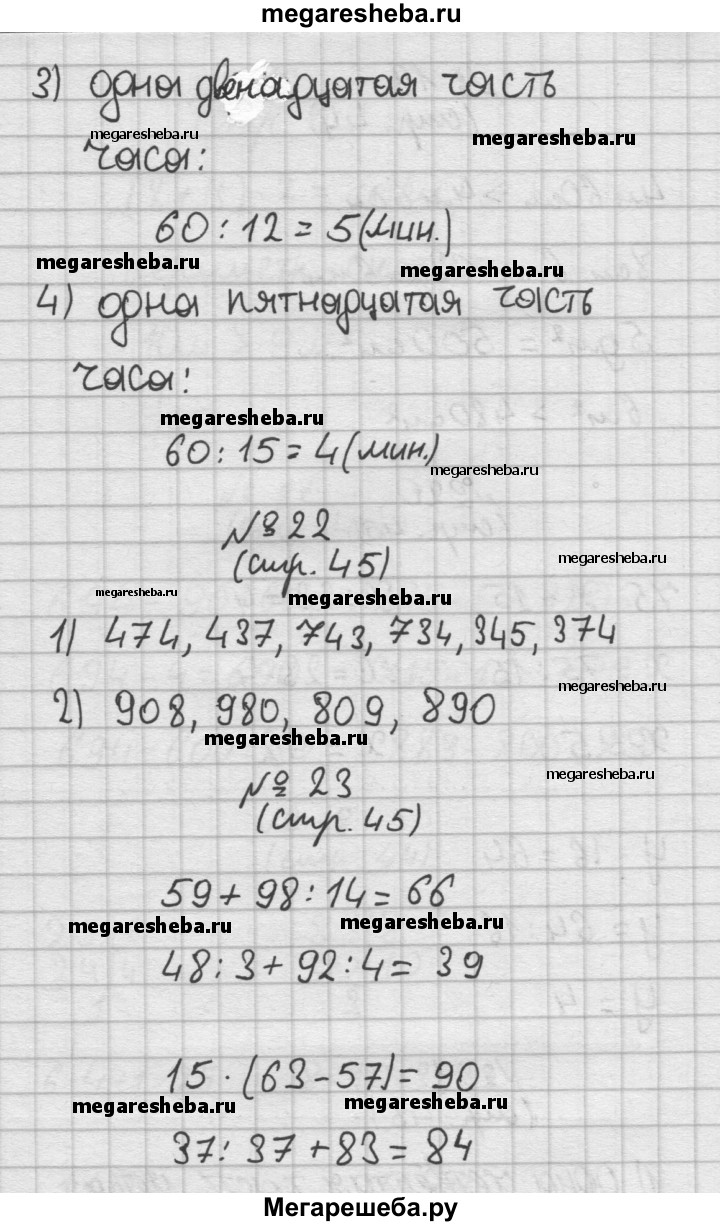 megaresheba.ru
3) одна двенадцатая часть
megaresheba.ru
megaresheba.ru
часа:
60 : 12 = 5 (мин.)
megaresheba.ru
megaresheba.ru
4) одна пятнадцатая часть
часа:
megaresheba.ru
60 : 15 = 4 (мин.)
megaresheba.ru
№ 22
(стр. 45)
megaresheba.ru
megaresheba.ru
megaresheba.ru
1) 474, 437, 743, 734, 345, 374
megaresheba.ru
2) 908, 980, 809, 890
megaresheba.ru
№ 23
megaresheba.ru
(стр. 45)
59 + 98 : 14 = 66
megaresheba.ru
megaresheba.ru
48 : 3 + 92 : 4 = 39
15 · (63 - 57) = 90
megaresheba.ru
megaresheba.ru
37 : 37 + 83 = 84
Мегарешеба.ру